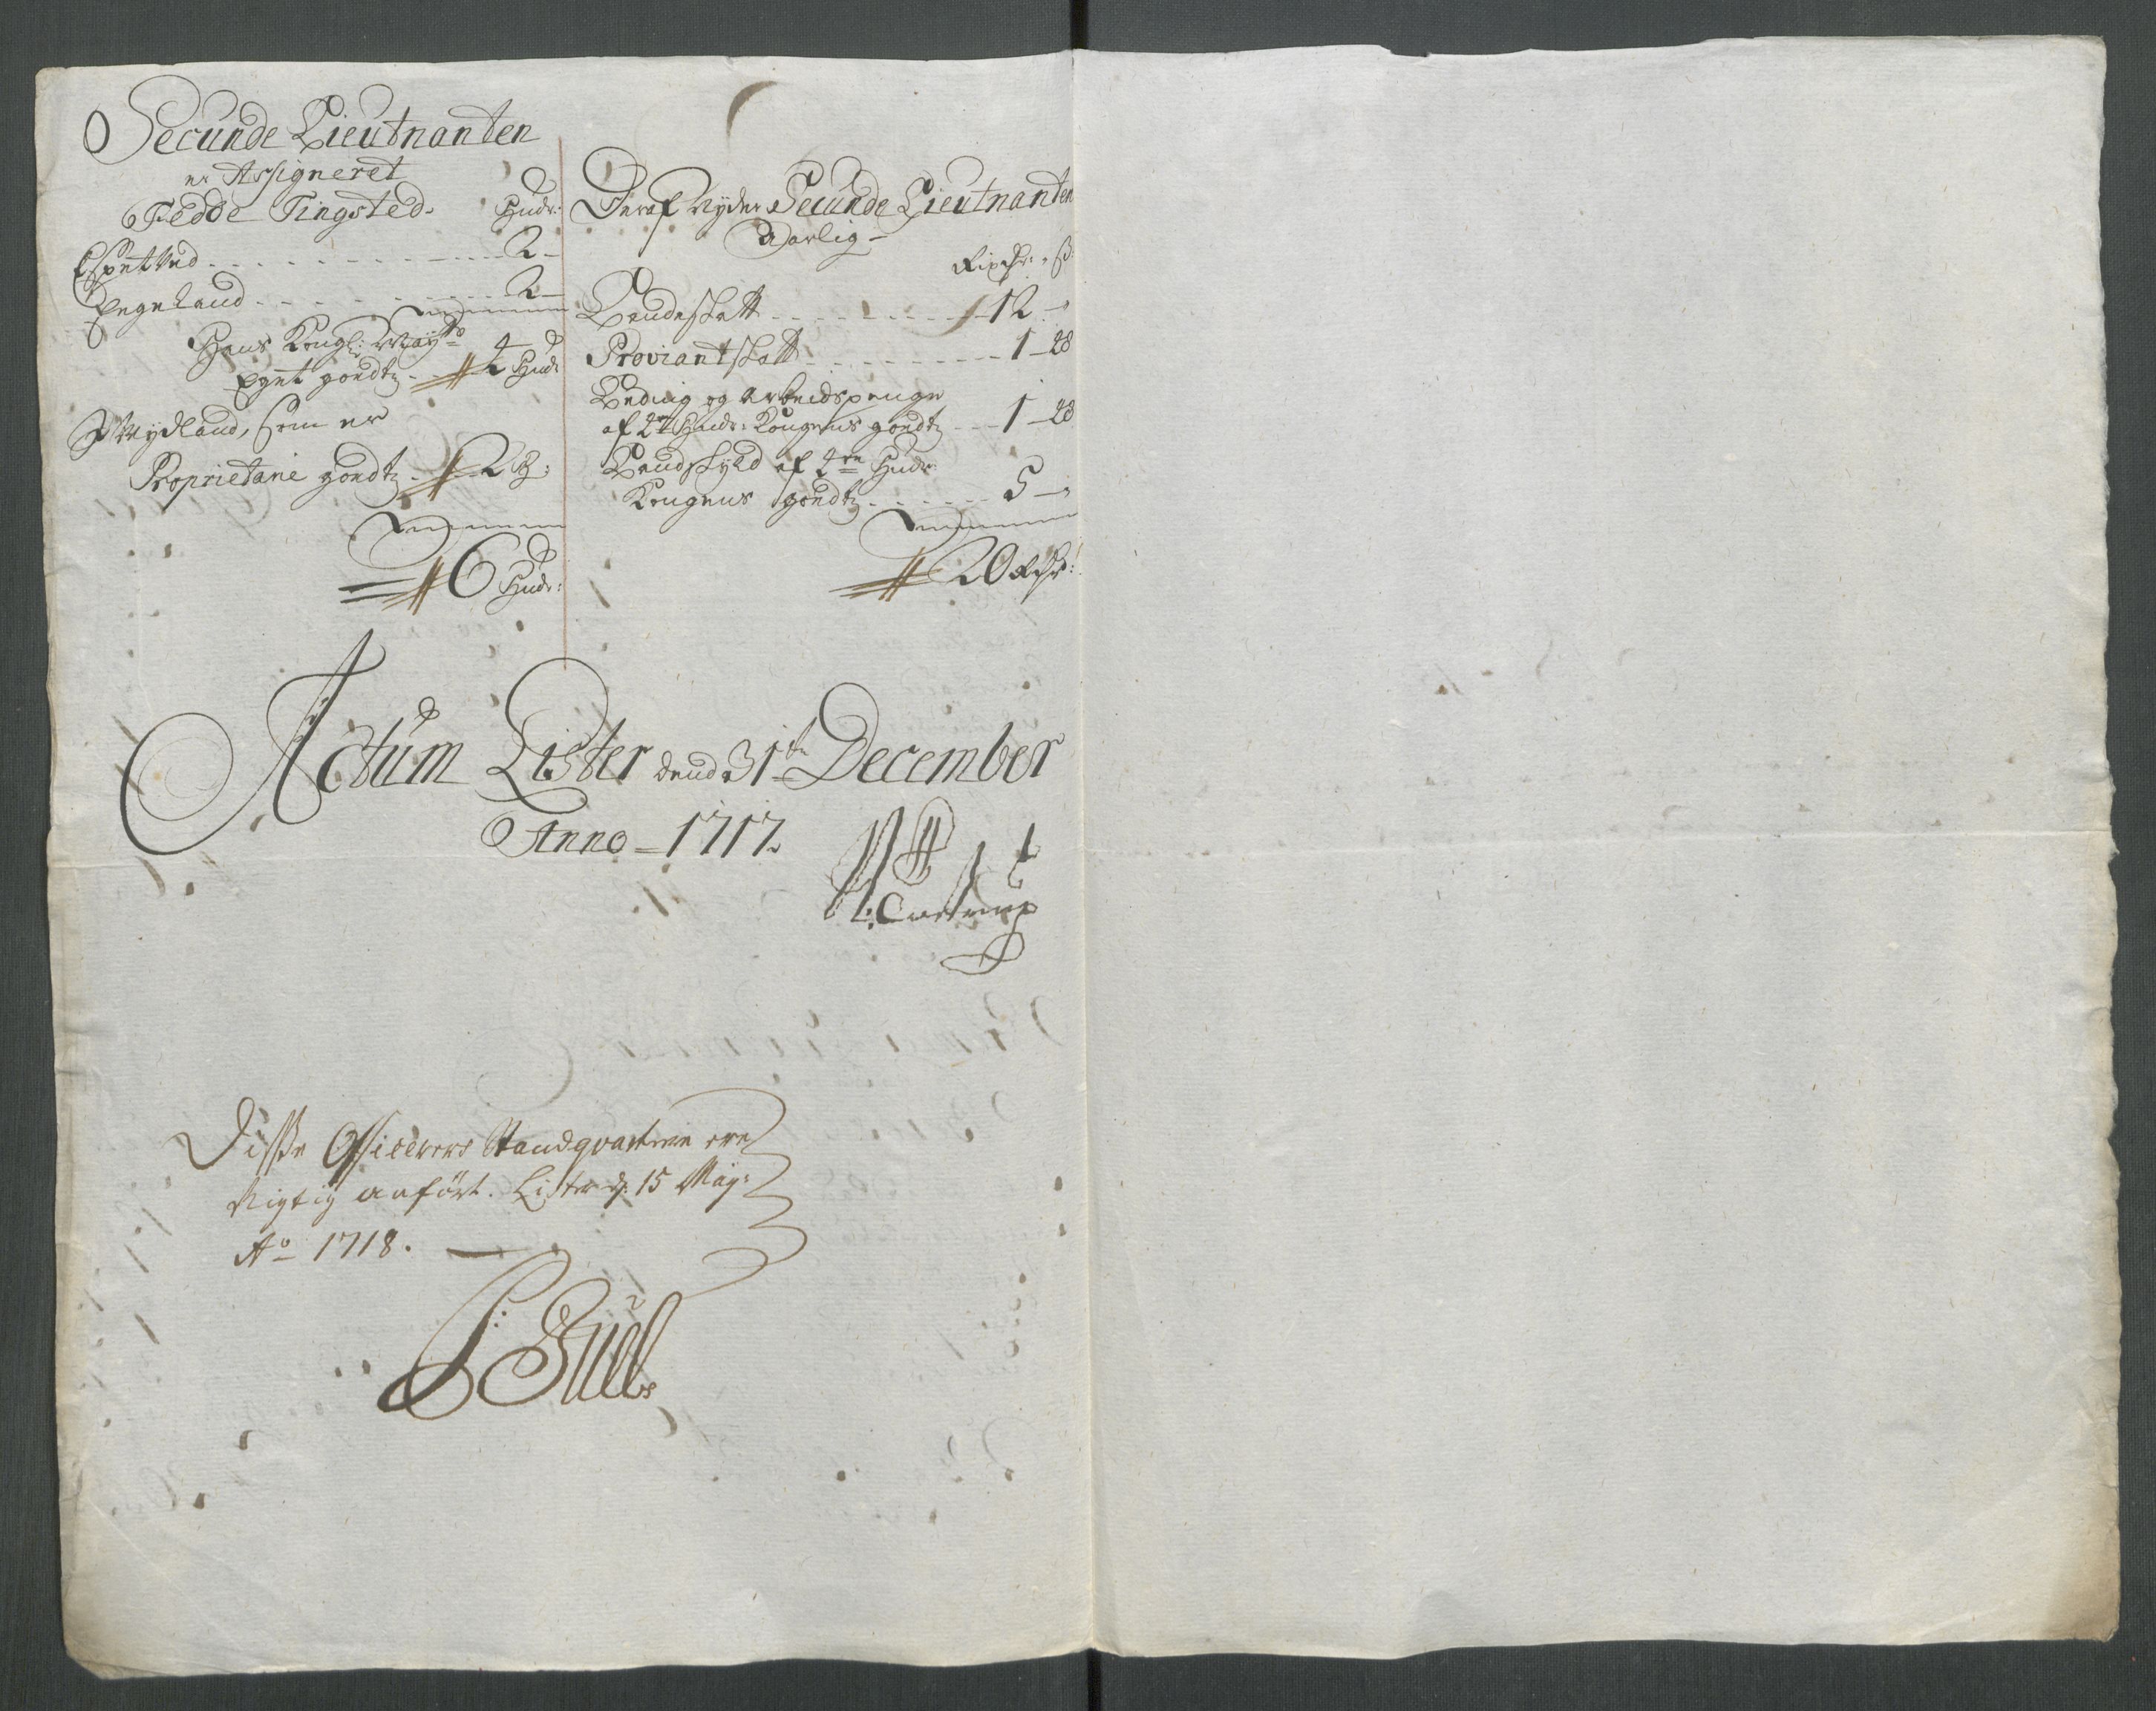 Secunde Lieutnanten
er Assigneret
Fedde Tingsted. Hudr:
Espetved 2 –
Egeland 2 –
Hans Kongl: Mayts
Eget goedtz 4 Hudr
Mydland, som er
Proprietarie goedtz 2 H:
6 Hudr:
Deraf Nyder Secunde Lieutnanten
Aarlig –
Rixdr: ß
Leudeskatt 12 –
Proviantskatt 1 – 28
Leding og Arbeidspenge
af 4re Hudr: Kongens goedtz 1 – 28
Landskyld af 4re Hudr
Kongens goedtz 5 –
20 Rdr:
Actum Lister dend 31te December
Anno – 1717.
Castrup
Disse Officerers Standqvarteer ere
Rigtig anført. Lister d: 15 Maij:
Ao 1718.